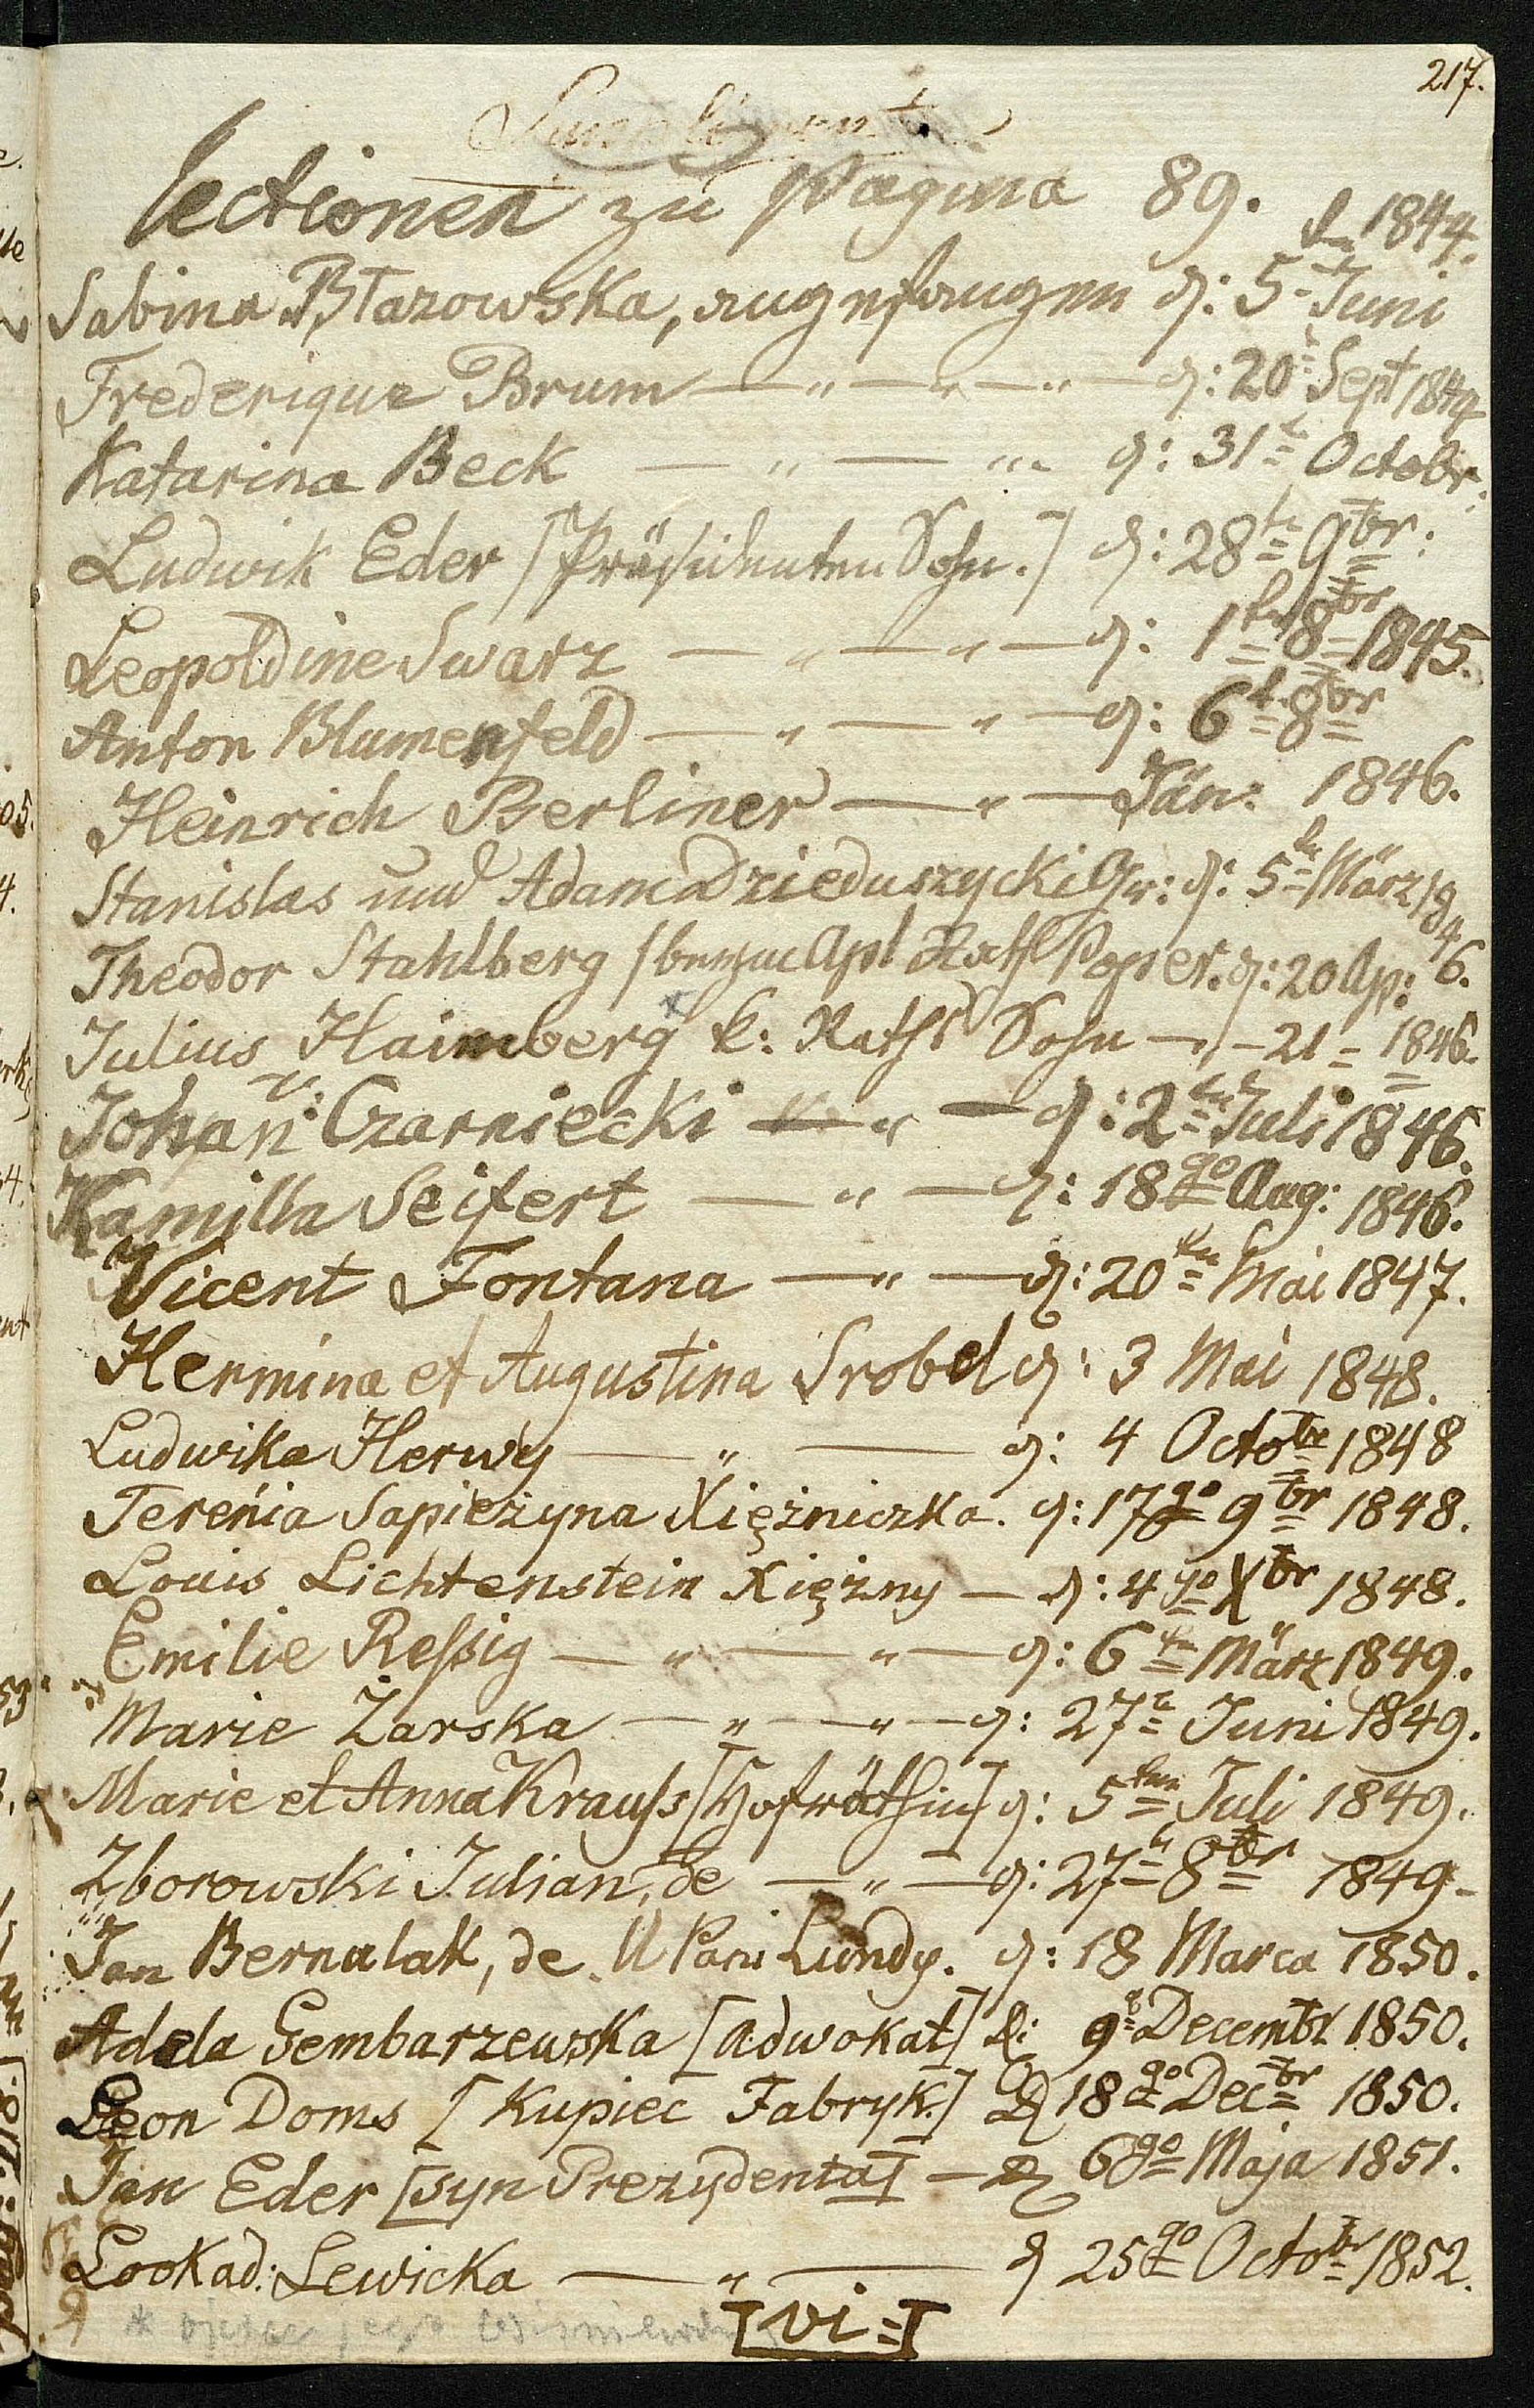 217.
Lectionen zu Pagina 89.
1844.
Sabina Błazowska, angefangen d: 5t Juni
Frederique Brum — " — " — " — d: 20t Sept 1844
Katarina Beck — " — " d: 31t Octobr:
Ludwik Eder [Präsidenten Sohn.] d: 28t 9br:
Leopoldine Swarz — " — " — d: 1tn 8br 1845.
Anton Blumenfeld — " — " — d: 6t 8br
Heinrich Berliner — " — Jän: 1846.
Stanislas und Adam Dzieduszycki Gr: d: 5tn März 1846.
Theodor Stahlberg Apl Rath Poper. d: 20 Ap:
Julius Haimberg* k: Raths Sohn — " — 21 = 1846.
Johan: Czarniecki — " — d: 2tn Juli 1846.
Kamilla Seifert — " — d: 18go Aug: 1846.
Vicent Fontana — " — d: 20tn Mai 1847.
Hermina et Augustina Srobel d: 3 Mai 1848.
Ludwika Herwy — " — d: 4 Octobr 1848
Tereńia Sapieżyna Xiężniczka. d: 17go 9br 1848.
Louis Lichtenstein Xiężny — d: 4go Xbr 1848.
Emilie Reſsig — " — " — d: 6tn März 1849.
Marie Zarska — " — " — d: 27t Juni 1849.
Marie et Anna Krauſs [Hofräthin] d: 5ten Juli 1849.
Zborowski Julian, de — " — d: 27t 8br 1849.
Jan Bernalak, de. U Pani Lundy. d: 18 Marca 1850.
Adela Gembarzewska [Adwokat] D: 9t Decembr 1850.
Leon Doms [Kupiec Fabryk.] D 18go Decbr 1850.
Jan Eder [syn Prezydenta] — D 6go Maja 1851.
Lookad: Lewicka — " — d 25go Octobr 1852.
[vi=]